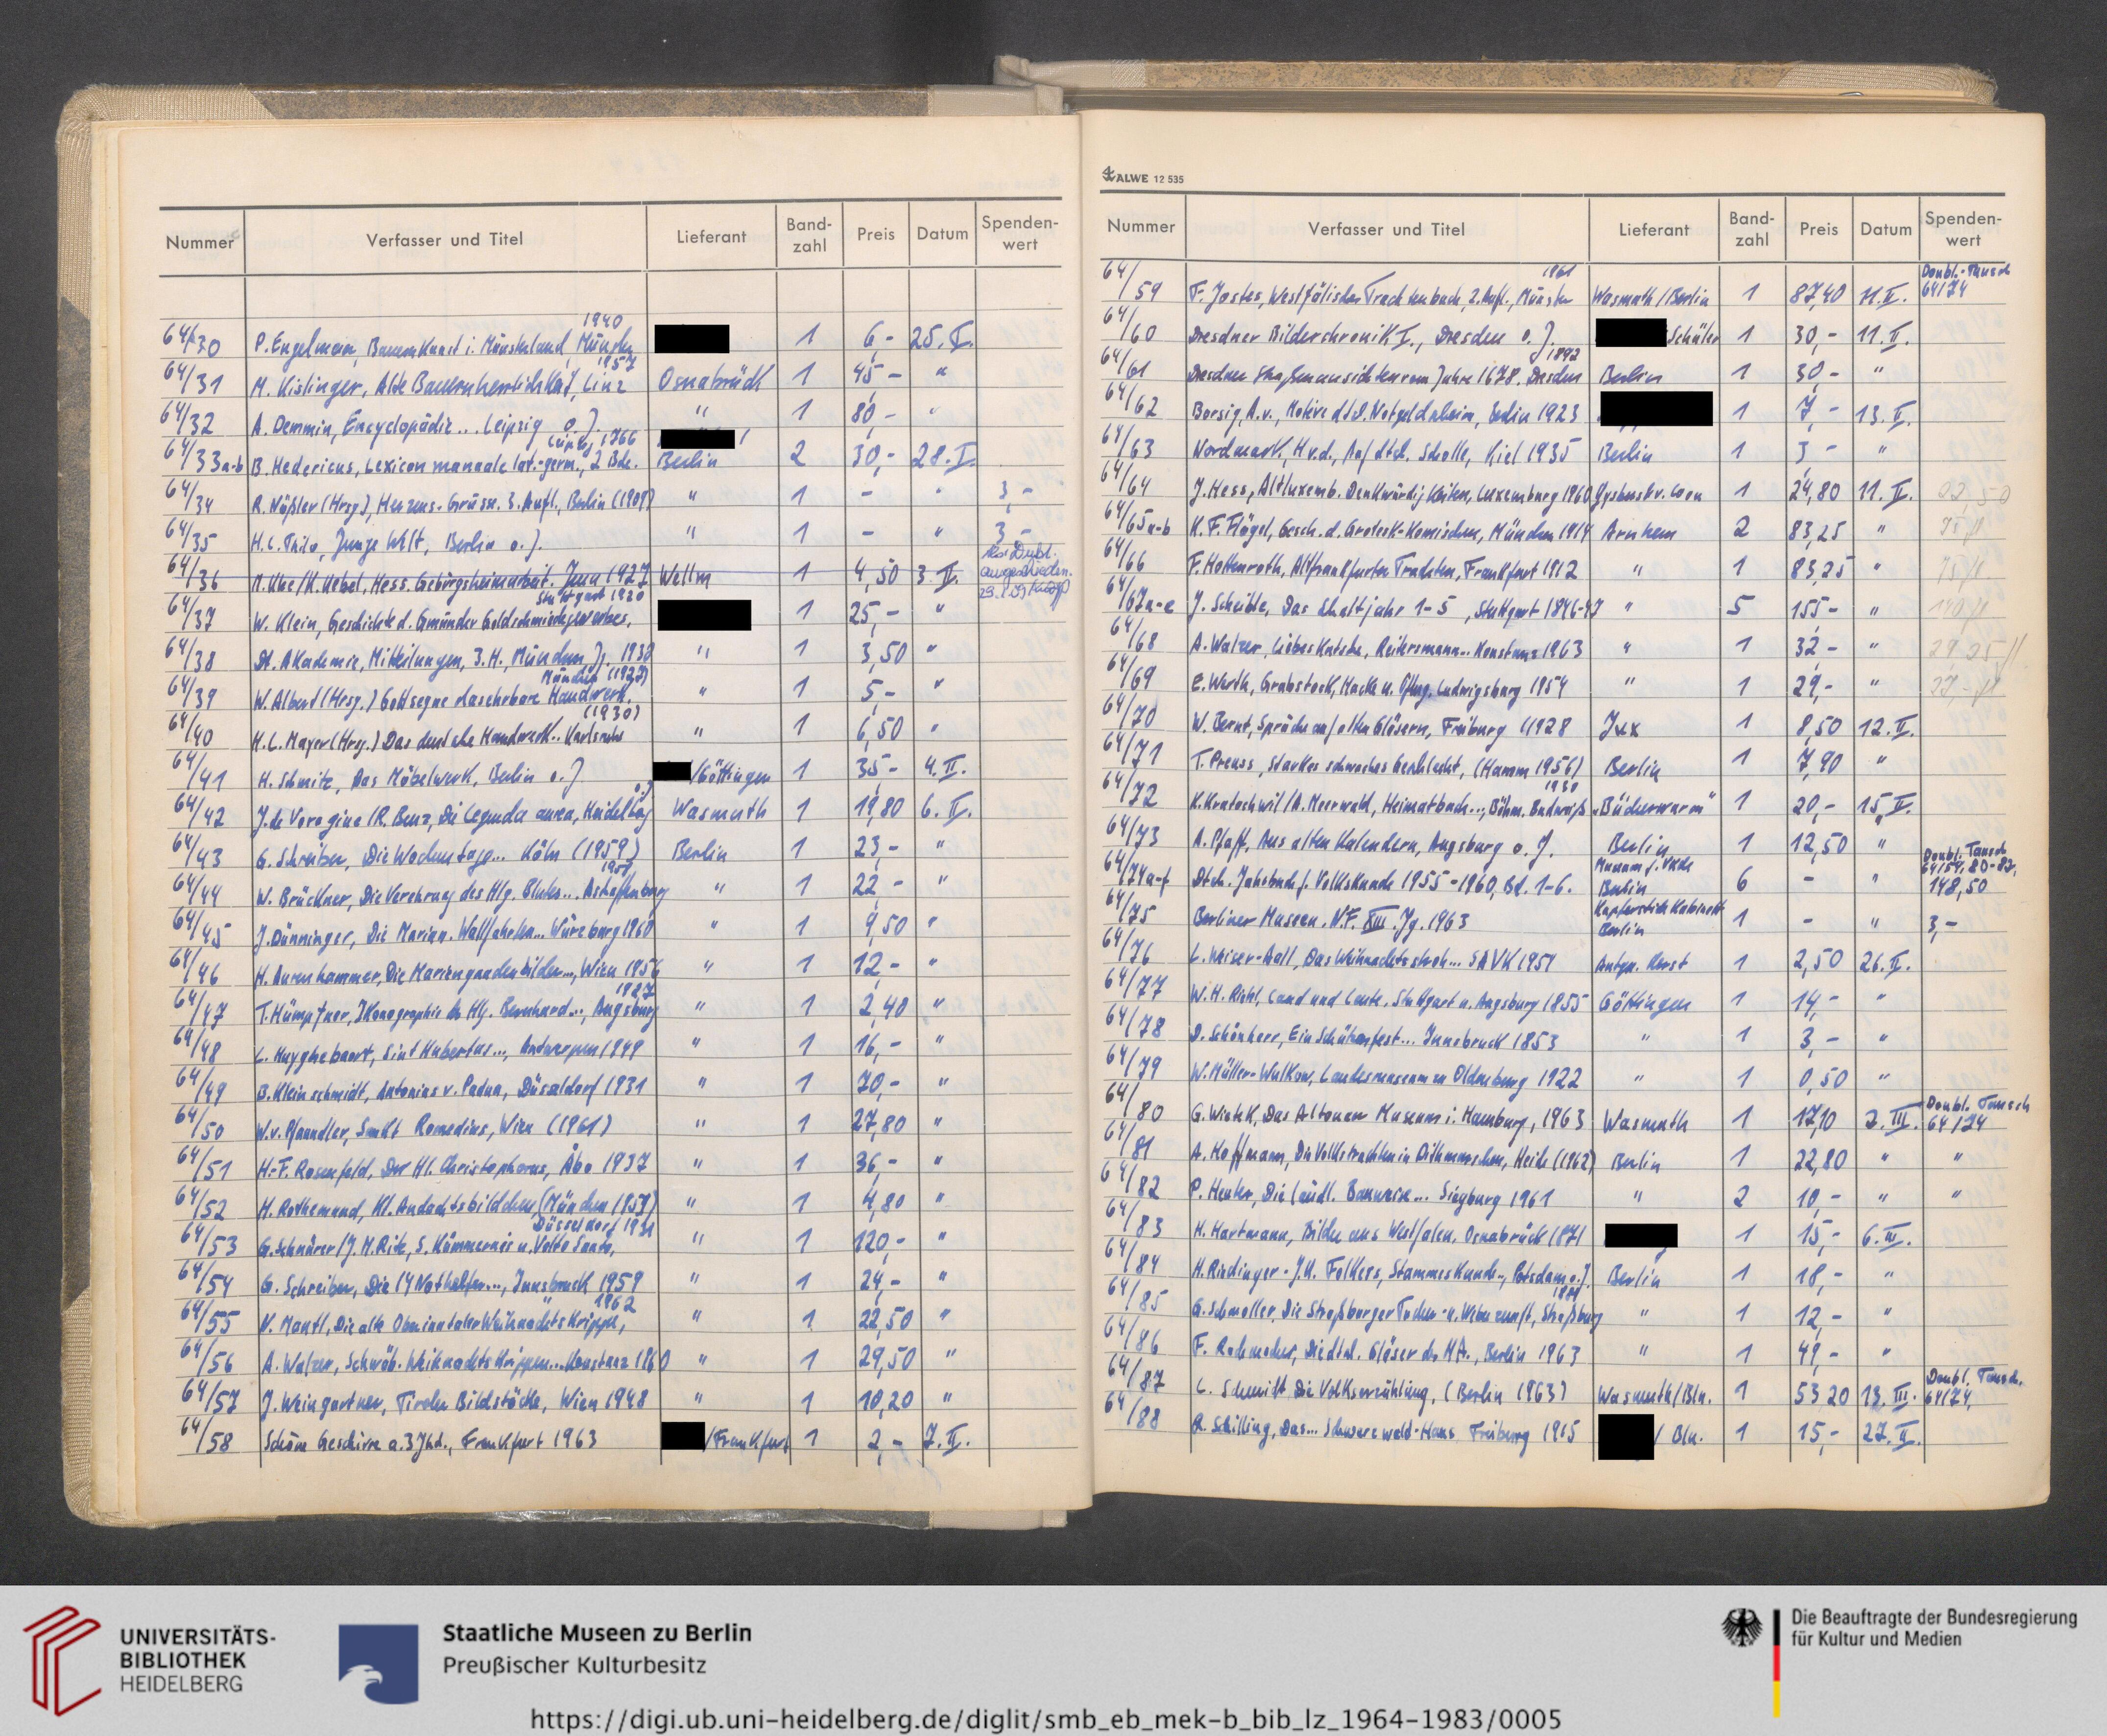 Nummer Verfasser und Titel Lieferant Band-zahl Preis Datum Spenden-wert
1940
64/30 P. Engelmeier, Bauernkunst i. Münsterland, Münster 1 6,- 25. I.
1957
64/31 M. Kislinger, Alte Bauernherrlichkeit, Linz Osnabrück 1 45,- "
64/32 A. Demmin, Encyclopädie... Leipzig o. J. " 1 80,- "
Leipzig 1766
64/33a-b B. Hedericus, Lexicon manuale lat.-germ., 2 Bde. Berlin 2 30,- 28. I.
64/34 R. Nößler (Hrsg.), Herzens-Grüsse. 3. Aufl., Berlin (1909) " 1 - " 3,-
64/35 H. C. Thilo, Junge Welt, Berlin o. J. " 1 - " 3,-
als Dubl.
ausgeschieden.
64/36 Hess. Gebirgsheimarbeit. Jena 1927 Wellm 1 4,50 3. II.
Stuttgart 1920
64/37 W. Klein, Geschichte d. Gmünder Goldschmiedegewerbes, 1 25,- "
64/38 Dt. Akademie, Mitteilungen, 3. H., München Jg. 1938 " 1 3,50 "
München (1927)
64/39 W. Albert (Hrsg.) Gott segne das ehrbare Handwerk, " 1 5,- "
(1930)
64/40 H. L. Mayer (Hrsg.) Das deutsche Handwerk.. Karlsruhe " 1 6,50 "
64/41 H. Schmitz, Das Möbelwerk, Berlin o. J /Göttingen 1 35,- 4. II.
o. J
64/42 J. de Voragine /R. Benz, Die Legenda aurea, Heidelberg Wasmuth 1 19,80 6. II.
64/43 G. Schreiber, Die Wochentage... Köln (1959) Berlin 1 23,- "
64/44 W. Brückner, Die Verehrung des Hlg. Blutes... Aschaffenburg " 1 22,- "
64/45 J. Dünninger, Die Marian. Wallfahrten... Würzburg 1960 " 1 9,50 "
64/46 H. Aurenhammer, Die Mariengnadenbilder..., Wien 1956 " 1 12,- "
1927
64/47 T. Hümpfner, Ikonographie des Hlg. Bernhard..., Augsburg " 1 2,40 "
64/48 L. Huyghebaert, Sint Hubertus..., Antwerpen 1949 " 1 16,- "
64/49 B. Kleinschmidt, Antonius v. Padua, Düsseldorf 1931 " 1 70,- "
64/50 W. v. Pfaundler, Sankt Romedius, Wien (1961) " 1 27,80 "
64/51 H.-F. Rosenfeld, Der Hl. Christophorus, Åbo 1937 " 1 36,- "
64/52 H. Rothemund, Kl. Andachtsbildchen, (München 1959) " 1 4,80 "
Düsseldorf 1934
64/53 G. Schnürer /J. M. Ritz, S. Kümmernis u. Volto Santo, " 1 120,- "
64/54 G. Schreiber, Die 14 Nothelfer..., Innsbruck 1959 " 1 24,- "
" 1962
64/55 N. Mantl, Die alte Oberinntaler Weihnachtskrippe, " 1 22,50 "
64/56 A. Walzer, Schwäb. Weihnachtskrippen... Konstanz 1960 " 1 29,50 "
64/57 J. Weingartner, Tiroler Bildstöcke, Wien 1948 " 1 10,20 "
64/58 Schöne Geschirre a. 3 Jhd., Frankfurt 1963 /Frankfurt 1 2,- 7. II.
ALWE 12 535
Nummer Verfasser und Titel Lieferant Band-zahl Preis Datum Spenden-wert
1961 Doubl.-Tausch
64/59 F. Jostes, Westfälisches Trachtenbuch, 2. Aufl., Münster Wasmuth /Berlin 1 87,40 11. II. 64/74
64/60 Dresdner Bilderchronik I., Dresden o. J. Schüler 1 30,- 11. II.
1892
64/61 Dresdner Straßenansichten vom Jahre 1678. Dresden Berlin 1 30,- "
64/62 Borsig, A. v., Motive d. td. Notgeldscheine, Berlin 1923 1 7,- 13. II.
64/63 Nordmark, H. v. d., Auf dtsch. Scholle, Kiel 1935 Berlin 1 3,- "
64/64 J. Hess, Altluxemb. Denkwürdigkeiten, Luxemburg 1960 Gysbers+v. Loon 1 24,80 11. II. 22,50
64/65a-b K. F. Flögel, Gesch. d. Grotesk-Komischen, München 1914 Arnhem 2 83,25 " 75 fl
64/66 F. Hottenroth, Altfrankfurter Trachten, Frankfurt 1912 " 1 83,25 " 75 fl
64/67a-e J. Scheible, Das Schaltjahr 1-5, Stuttgart 1846-47 " 5 155,- " 140 fl
64/68 A. Walzer, Liebeskutsche, Reitersmann... Konstanz 1963 " 1 32,- " 29,25 fl
64/69 E. Werth, Grabstock, Hacke u. Pflug, Ludwigsburg 1954 " 1 29,- " 27,- fl
64/70 W. Bernt, Sprüche auf alten Gläsern, Freiburg 1928 Jxx 1 8,50 12. II.
64/71 T. Preuss, Starkes schwaches Geschlecht, (Hamm 1956) Berlin 1 7,90 "
1930
64/72 K. Kratochwil /A. Meerwald, Heimatbuch..., Böhm. Budweis „Bücherwurm" 1 20,- 15. II.
64/73 A. Pfaff, Aus alten Kalendern, Augsburg o. J. Berlin 1 12,50 "
Museum f. Vkde Doubl. Tausch
64/54, 80-82,
64/74a-f Dtsch. Jahrbuch f. Volkskunde 1955-1960, Bd. 1-6. Berlin 6 - " 148,50
Kupferstichkabinett
64/75 Berliner Museen. N. F. XIII. Jg. 1963 Berlin 1 - " 3,-
64/76 L. Weiser-Aall, Das Weihnachtsstroh... SAVK 1951 Antqu. Horst 1 2,50 26. II.
64/77 W. H. Riehl, Land und Leute. Stuttgart u. Augsburg 1855 Göttingen 1 14,- "
64/78 D. Schönherr, Ein Schützenfest... Innsbruck 1853 " 1 3,- "
64/79 W. Müller-Wulkow, Landesmuseum zu Oldenburg 1922 " 1 0,50 "
Doubl. Tausch
64/80 G. Wietek, Das Altonaer Museum i. Hamburg, 1963 Wasmuth 1 17,10 2. III. 64/74
64/81 A. Hoffmann, Die Volkstrachten in Dithmarschen, Heide (1962) Berlin 1 22,80 " "
64/82 P. Heuter, Die ländl. Bauweise... Siegburg 1961 " 2 10,- " "
64/83 H. Hartmann, Bilder aus Westfalen, Osnabrück 1871 1 15,- 6. III.
64/84 H. Riedinger - J. U. Folkers, Stammeskunde.., Potsdam o. J. Berlin 1 18,- "
64/85 G. Schmoller, Die Straßburger Tucher- u. Weberzunft, Straßburg " 1 12,- "
64/86 F. Rademacher, Die dtsch. Gläser des MA., Berlin 1963 " 1 49,- "
Doubl. Tausch.
64/87 L. Schmidt Die Volkserzählung, (Berlin 1963) Wasmuth/Bln. 1 53,20 13. III. 64/74,
64/88 R. Schilling, Das... Schwarzwald-Haus Freiburg 1915 / Bln. 1 15,- 27. II.
UNIVERSITÄTS-
BIBLIOTHEK
HEIDELBERG
Staatliche Museen zu Berlin
Preußischer Kulturbesitz
Die Beauftragte der Bundesregierung
für Kultur und Medien
https://digi.ub.uni-heidelberg.de/diglit/smb_eb_mek-b_bib_lz_1964-1983/0005